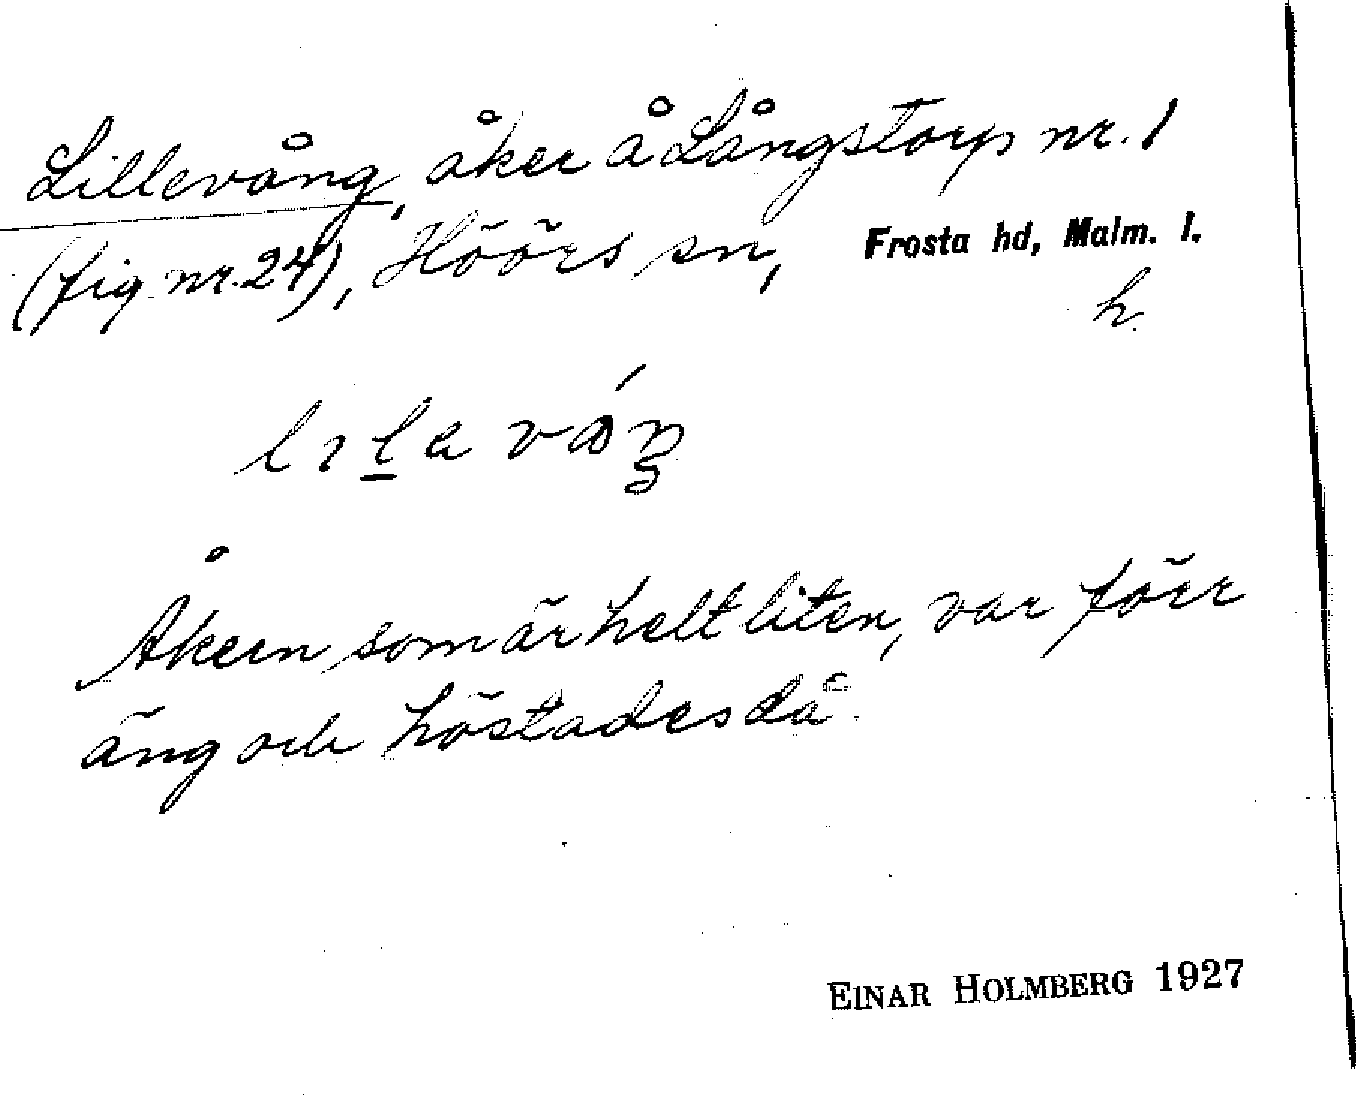 Lillevång, åker å Långstorp nr. 1
(fig. nr. 24), Höörs sn, Frosta hd, Malm. l.
h.
Åkern som är helt liten, var förr
äng och höstades då.
EINAR HOLMBERG 1927